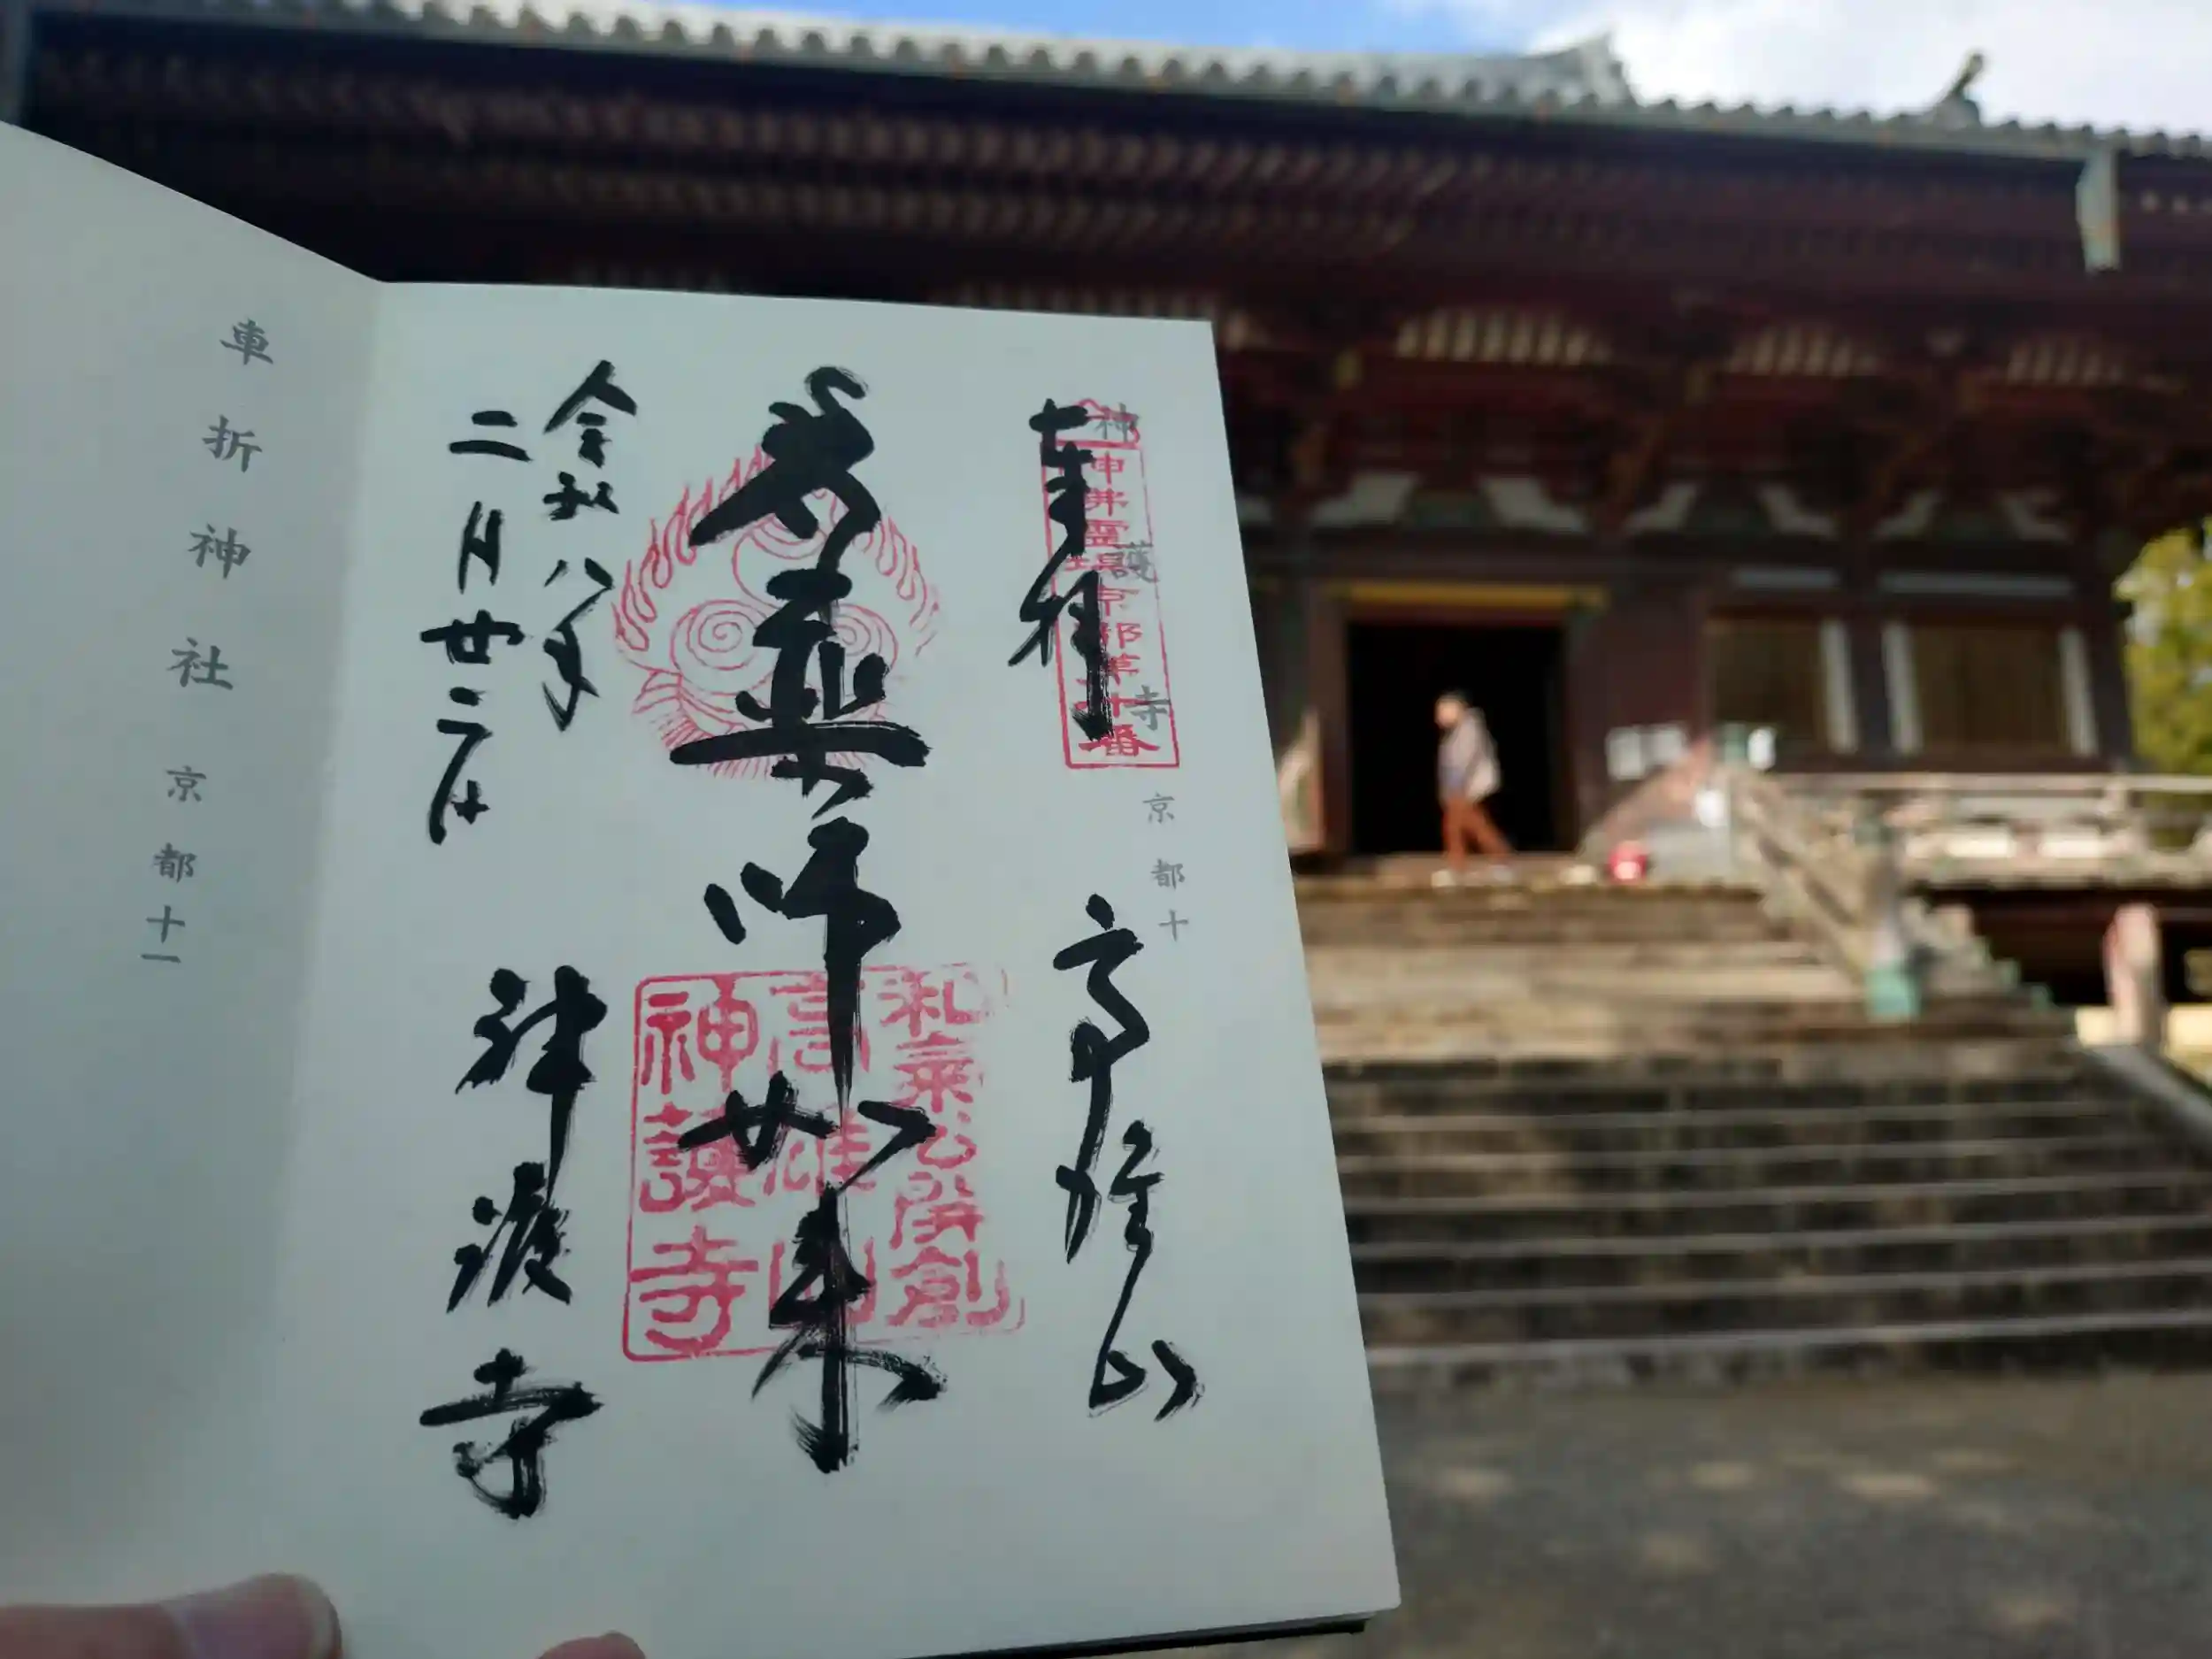 神護寺 京都十
神佛霊場京都第十番
奉拝 高雄山
薬師如来
和氣公開創
高雄山
神護寺
令和八年
二月廿二日
神護寺
車折神社 京都十一